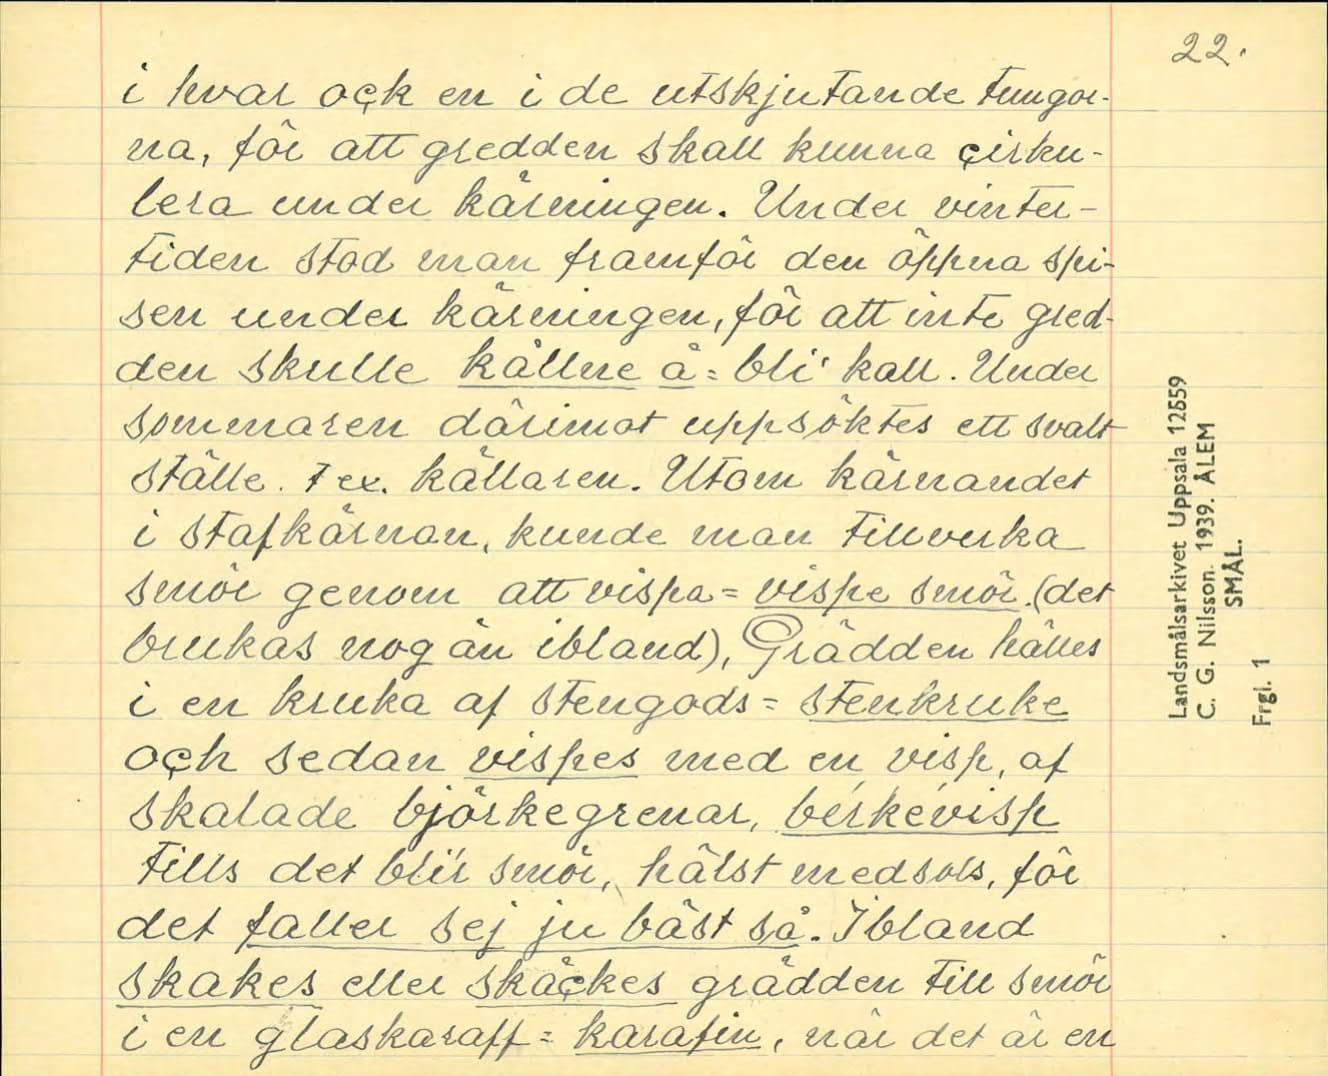 22.
i hvar ock en i de utskjutande tungor-
na, för att gredden skall kunna cirku-
lera under kärningen. Under vinter-
tiden stod man framför den öppna spi-
sen under kärningen, för att inte gred-
den skulle kållne å = bli' kall. Under
sommaren därimot uppsöktes ett svalt
ställe. t ex. källaren. Utom kärnandet
i stafkärnan, kunde man tillverka
smör genom att vispa = vispe smör. (det
brukas nog än ibland), Grädden hälles
i en kruka af stengods = stenkruke
och sedan vispes med en visp, af
skalade björkegrenar, bérkévisp
tills det bli'r smör, hälst medsols, för
det faller sej ju bäst så. Ibland
skakes eller skäckes grädden till smör
i en glaskaraff = karafin, när det är en
Landsmålsarkivet Uppsala 12559
C. G. Nilsson. 1939. ÅLEM
SMÅL.
Frgl. 1